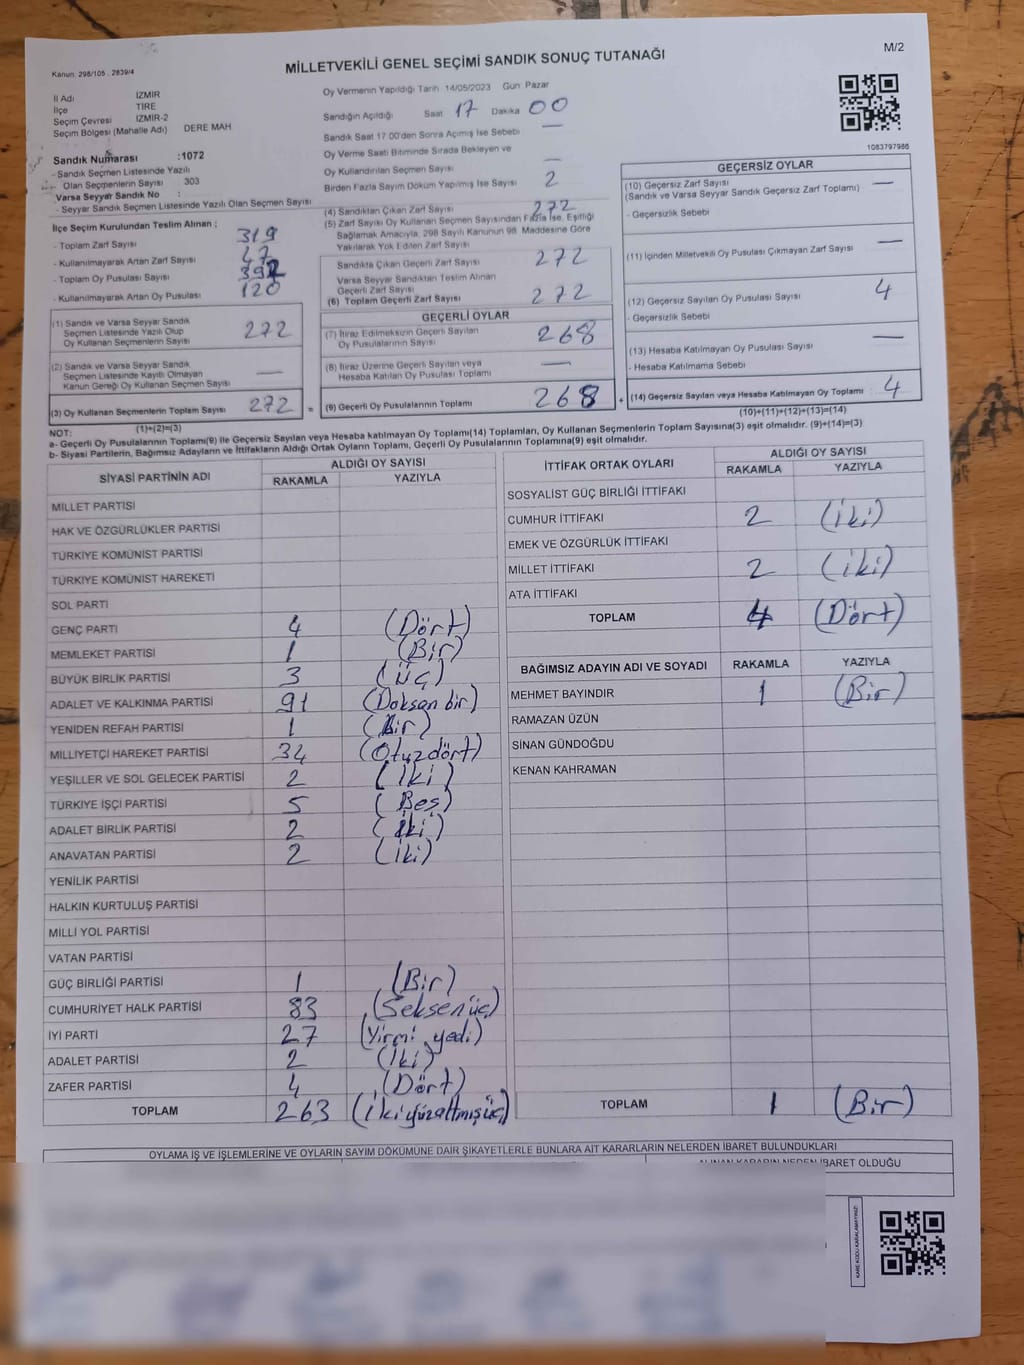 M/2
Kanun: 298/105, 2839/4
MİLLETVEKİLİ GENEL SEÇİMİ SANDIK SONUÇ TUTANAĞI
İl Adı İZMİR
İlçe TİRE
Seçim Çevresi İZMİR-2
Seçim Bölgesi (Mahalle Adı) DERE MAH
Sandık Numarası :1072
- Sandık Seçmen Listesinde Yazılı
Olan Seçmenlerin Sayısı : 303
Varsa Seyyar Sandık No :
- Seyyar Sandık Seçmen Listesinde Yazılı Olan Seçmen Sayısı
İlçe Seçim Kurulundan Teslim Alınan :
- Toplam Zarf Sayısı 319
- Kullanılmayarak Artan Zarf Sayısı 47
- Toplam Oy Pusulası Sayısı 392
- Kullanılmayarak Artan Oy Pusulası 120
(1) Sandık ve Varsa Seyyar Sandık
Seçmen Listesinde Yazılı Olup
Oy Kullanan Seçmenlerin Sayısı 272
(2) Sandık ve Varsa Seyyar Sandık
Seçmen Listesinde Kayıtlı Olmayan
Kanun Gereği Oy Kullanan Seçmen Sayısı —
(3) Oy Kullanan Seçmenlerin Toplam Sayısı 272 =
(1)+(2)=(3)
Oy Vermenin Yapıldığı Tarih 14/05/2023 Gün: Pazar
Sandığın Açıldığı Saat 17 Dakika 00
Sandık Saat 17:00'den Sonra Açılmış İse Sebebi —
Oy Verme Saati Bitiminde Sırada Bekleyen ve
Oy Kullandırılan Seçmen Sayısı —
Birden Fazla Sayım Döküm Yapılmış İse Sayısı 2
(4) Sandıktan Çıkan Zarf Sayısı 272
(5) Zarf Sayısı Oy Kullanan Seçmen Sayısından Fazla İse, Eşitliği
Sağlamak Amacıyla, 298 Sayılı Kanunun 98. Maddesine Göre
Yakılarak Yok Edilen Zarf Sayısı
Sandıkta Çıkan Geçerli Zarf Sayısı 272
Varsa Seyyar Sandıktan Teslim Alınan
Geçerli Zarf Sayısı
(6) Toplam Geçerli Zarf Sayısı 272
GEÇERLİ OYLAR
(7) İtiraz Edilmeksizin Geçerli Sayılan
Oy Pusulalarının Sayısı 268
(8) İtiraz Üzerine Geçerli Sayılan veya
Hesaba Katılan Oy Pusulası Toplamı —
(9) Geçerli Oy Pusulalarının Toplamı 268 +
1083797986
GEÇERSİZ OYLAR
(10) Geçersiz Zarf Sayısı —
(Sandık ve Varsa Seyyar Sandık Geçersiz Zarf Toplamı)
- Geçersizlik Sebebi
(11) İçinden Milletvekili Oy Pusulası Çıkmayan Zarf Sayısı —
(12) Geçersiz Sayılan Oy Pusulası Sayısı 4
- Geçersizlik Sebebi
(13) Hesaba Katılmayan Oy Pusulası Sayısı —
- Hesaba Katılmama Sebebi
(14) Geçersiz Sayılan veya Hesaba Katılmayan Oy Toplamı 4
(10)+(11)+(12)+(13)=(14)
NOT:
a- Geçerli Oy Pusulalarının Toplamı(9) ile Geçersiz Sayılan veya Hesaba katılmayan Oy Toplamı(14) Toplamları, Oy Kullanan Seçmenlerin Toplam Sayısına(3) eşit olmalıdır. (9)+(14)=(3)
b- Siyasi Partilerin, Bağımsız Adayların ve İttifakların Aldığı Ortak Oyların Toplamı, Geçerli Oy Pusulalarının Toplamına(9) eşit olmalıdır.
SİYASİ PARTİNİN ADI ALDIĞI OY SAYISI
RAKAMLA YAZIYLA
MİLLET PARTİSİ
HAK VE ÖZGÜRLÜKLER PARTİSİ
TÜRKİYE KOMÜNİST PARTİSİ
TÜRKİYE KOMÜNİST HAREKETİ
SOL PARTİ
GENÇ PARTİ 4 (Dört)
MEMLEKET PARTİSİ 1 (Bir)
BÜYÜK BİRLİK PARTİSİ 3 (Üç)
ADALET VE KALKINMA PARTİSİ 91 (Doksan bir)
YENİDEN REFAH PARTİSİ 1 (Bir)
MİLLİYETÇİ HAREKET PARTİSİ 34 (Otuzdört)
YEŞİLLER VE SOL GELECEK PARTİSİ 2 (İki)
TÜRKİYE İŞÇİ PARTİSİ 5 (Beş)
ADALET BİRLİK PARTİSİ 2 (İki)
ANAVATAN PARTİSİ 2 (İki)
YENİLİK PARTİSİ
HALKIN KURTULUŞ PARTİSİ
MİLLİ YOL PARTİSİ
VATAN PARTİSİ
GÜÇ BİRLİĞİ PARTİSİ 1 (Bir)
CUMHURİYET HALK PARTİSİ 83 (Seksenüç)
İYİ PARTİ 27 (Yirmi yedi)
ADALET PARTİSİ 2 (İki)
ZAFER PARTİSİ 4 (Dört)
TOPLAM 263 (İkiyüzaltmışüç)
İTTİFAK ORTAK OYLARI ALDIĞI OY SAYISI
RAKAMLA YAZIYLA
SOSYALİST GÜÇ BİRLİĞİ İTTİFAKI
CUMHUR İTTİFAKI 2 (İki)
EMEK VE ÖZGÜRLÜK İTTİFAKI
MİLLET İTTİFAKI 2 (İki)
ATA İTTİFAKI
TOPLAM 4 (Dört)
BAĞIMSIZ ADAYIN ADI VE SOYADI RAKAMLA YAZIYLA
MEHMET BAYINDIR 1 (Bir)
RAMAZAN ÜZÜN
SİNAN GÜNDOĞDU
KENAN KAHRAMAN
TOPLAM 1 (Bir)
OYLAMA İŞ VE İŞLEMLERİNE VE OYLARIN SAYIM DÖKÜMÜNE DAİR ŞİKAYETLERLE BUNLARA AİT KARARLARIN NELERDEN İBARET BULUNDUKLARI
ALINAN KARARIN NEDEN İBARET OLDUĞU
KARE KODU KARALAMAYINIZ!